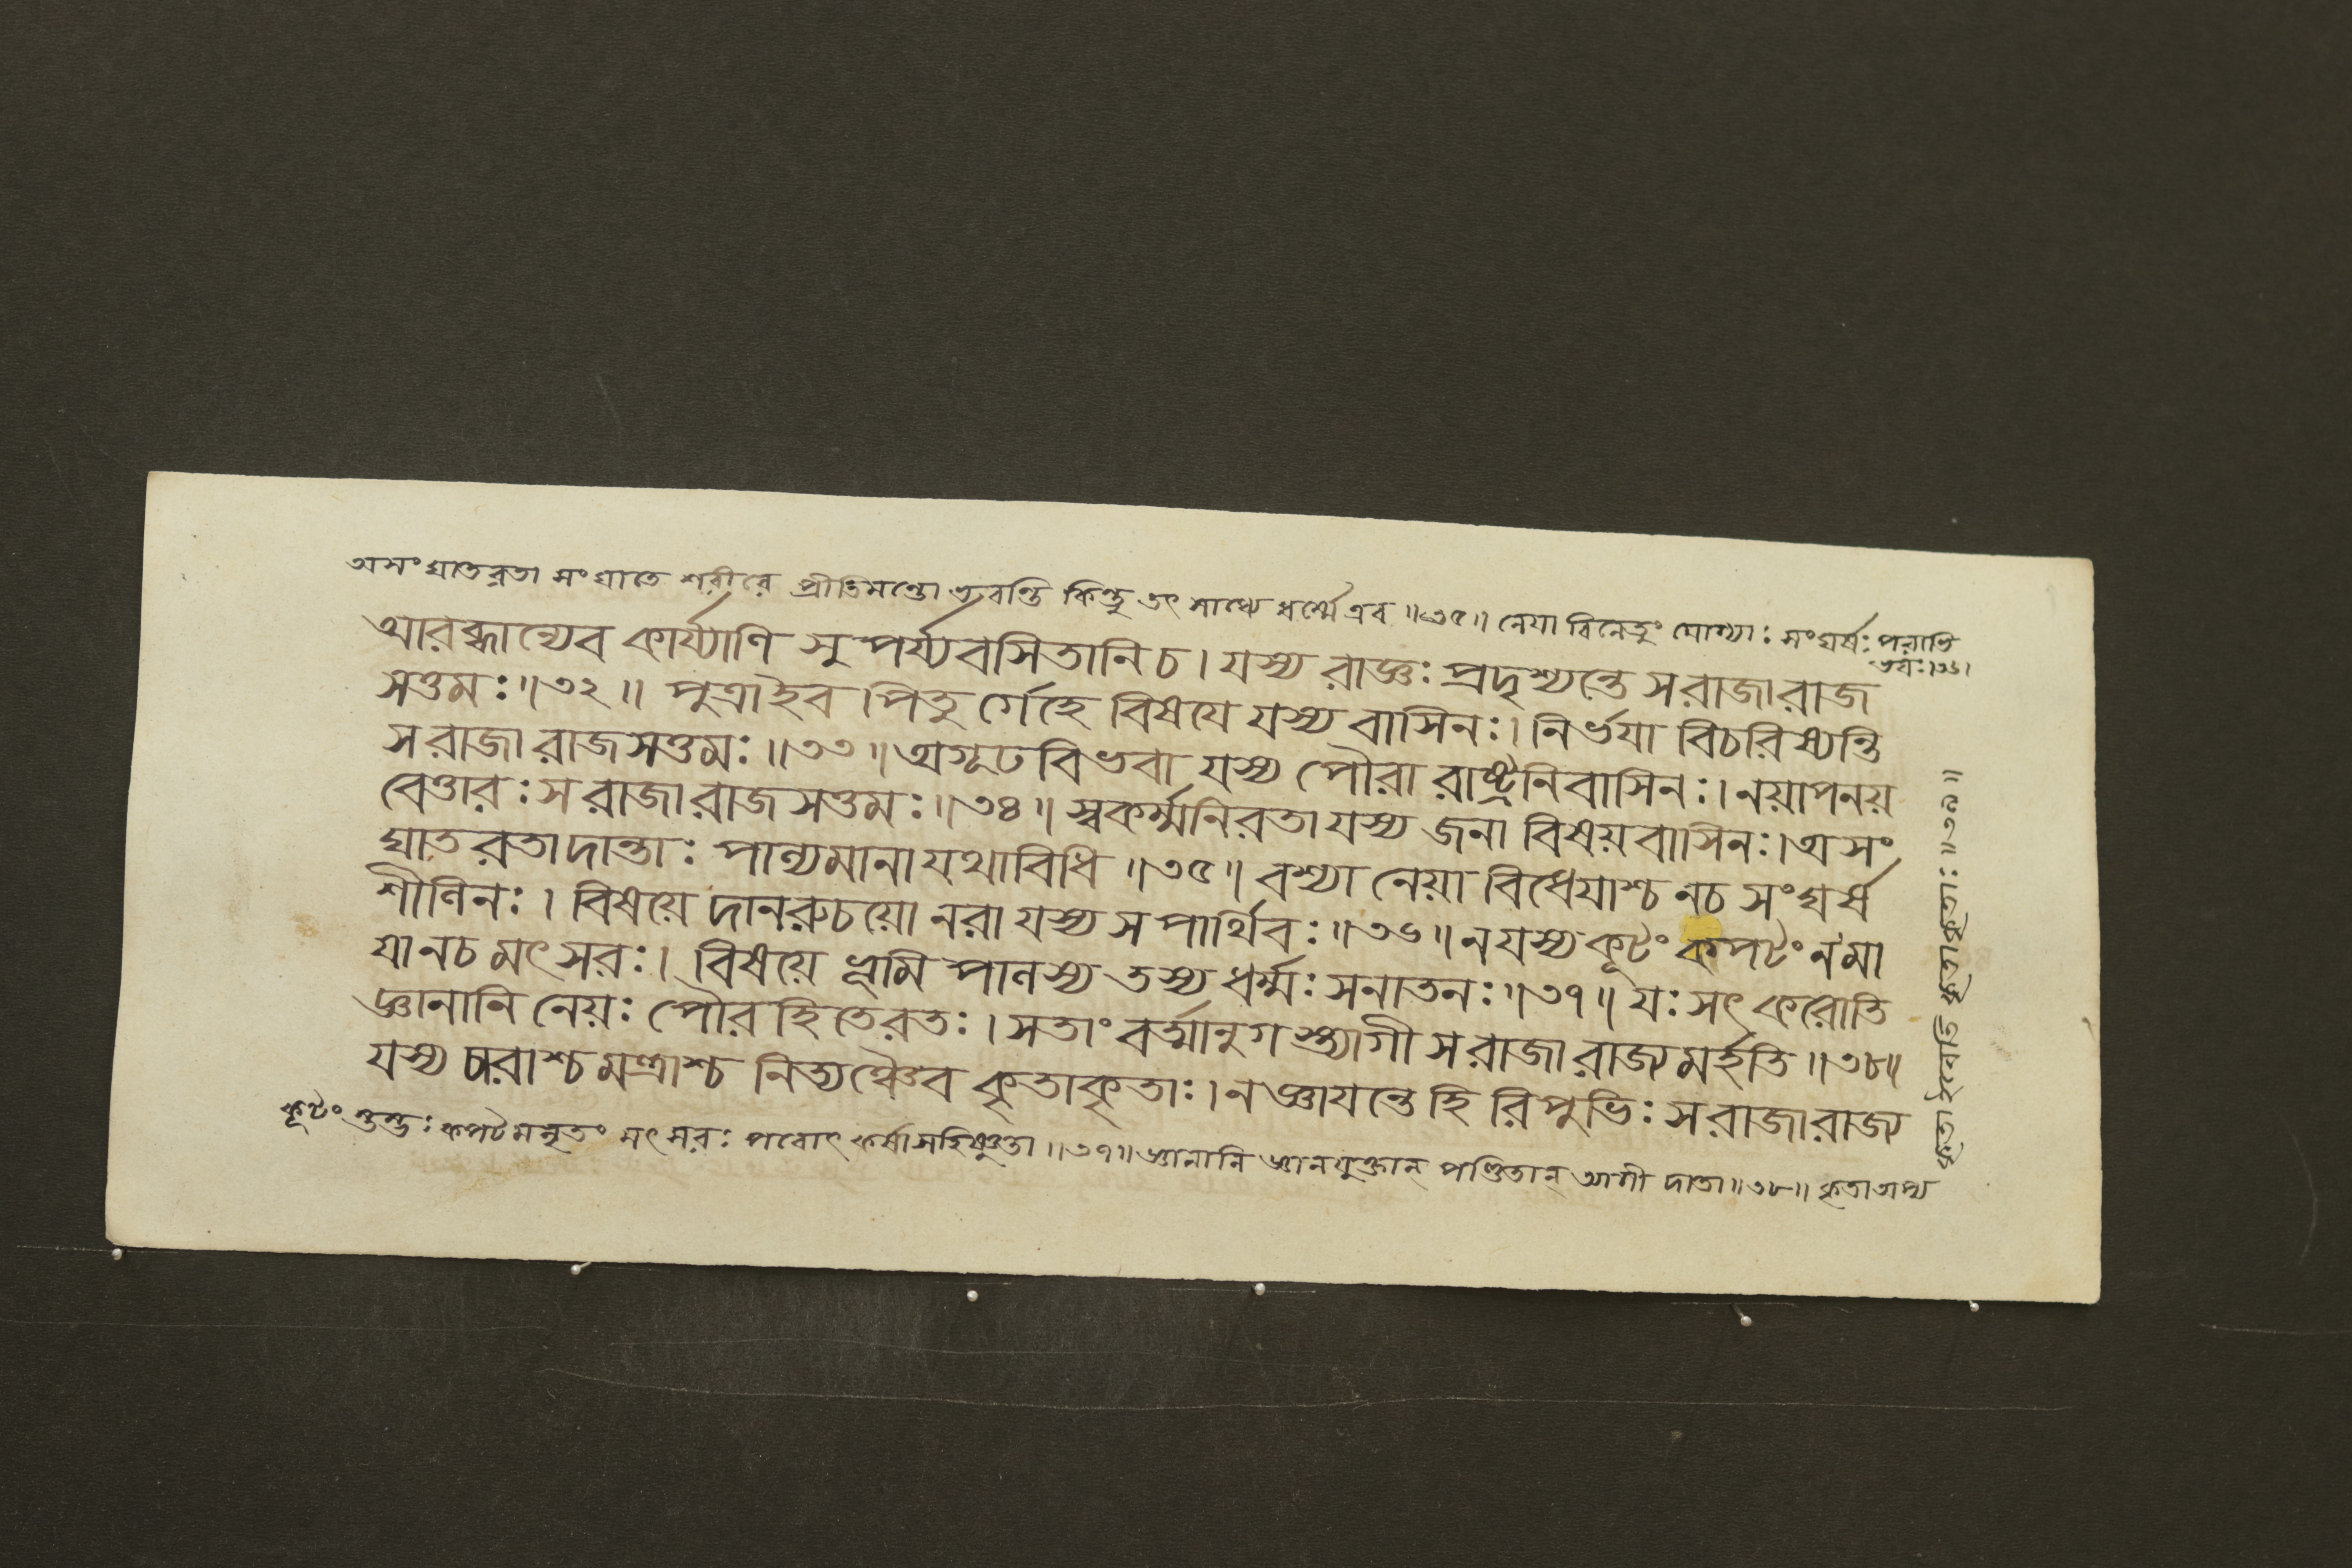 অসংঘাতরতা সংঘাতে শরীরে প্রীতিমন্তো ভবন্তি কিন্তু তৎ সাধ্যে ধর্ম্মে এব ॥৩৫॥ নেয়া বিনেতুং যোগ্যাঃ সংঘর্ষঃ পরাভি
ভবঃ।৩৬।
আরব্ধান্যেব কার্য্যাণি সুপর্য্যবসিতানিচ। যস্য রাজ্ঞঃ প্রদৃশ্যন্তে সরাজারাজ
সত্তমঃ॥৩২॥ পুত্রাইব পিতুর্গেহে বিষযে যস্য বাসিনঃ। নির্ভযা বিচরিষ্যন্তি
সরাজারাজসত্তমঃ॥৩৩॥ অগূঢবিভবা যস্য পৌরা রাষ্ট্রনিবাসিনঃ। নয়াপনয়
বেত্তারঃ সরাজারাজসত্তমঃ॥৩৪॥ স্বকর্ম্মনিরতাযস্য জনা বিষয়বাসিনঃ। অসং
ঘাতরতাদান্তাঃ পাল্যমানাযথাবিধি॥৩৫॥ বশ্যা নেয়া বিধেযাশ্চ নচ সংঘর্ষ
শীলিনঃ। বিষয়ে দানরুচয়ো নরা যস্য স পার্থিবঃ॥৩৬॥ নযস্য কূটং কপটং নমা
যা নচ মৎসরঃ। বিষয়ে ভূমিপালস্য তস্য ধর্ম্মঃ সনাতনঃ॥৩৭॥ যঃ সৎকরোতি
জ্ঞানানি নেয়ঃ পৌরহিতেরতঃ। সতাং বর্ত্মানুগস্ত্যাগী সরাজারাজ্যমর্হতি॥৩৮॥
যস্য চারাশ্চমন্ত্রাশ্চ নিত্যঞ্চৈব কৃতাকৃতাঃ। নজ্ঞাযন্তে হি রিপুভিঃ সরাজারাজ্য
কূটং কপটমনৃতং মৎসরঃ পরোৎকর্ষাসহিষ্ণুতা॥৩৭॥ জ্ঞানানি জ্ঞানযুক্তান্ পণ্ডিতান্ দাতা॥৩৮॥ কৃতা
কৃতাকৃতাঃ॥৩৯॥